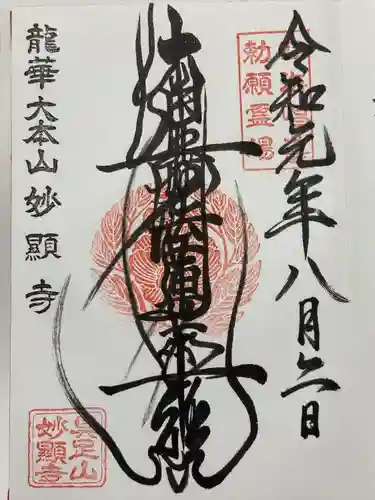 令和元年八月六日
勅願霊場
南無妙法蓮華経
龍華大本山妙顯寺
具足山
妙顯寺